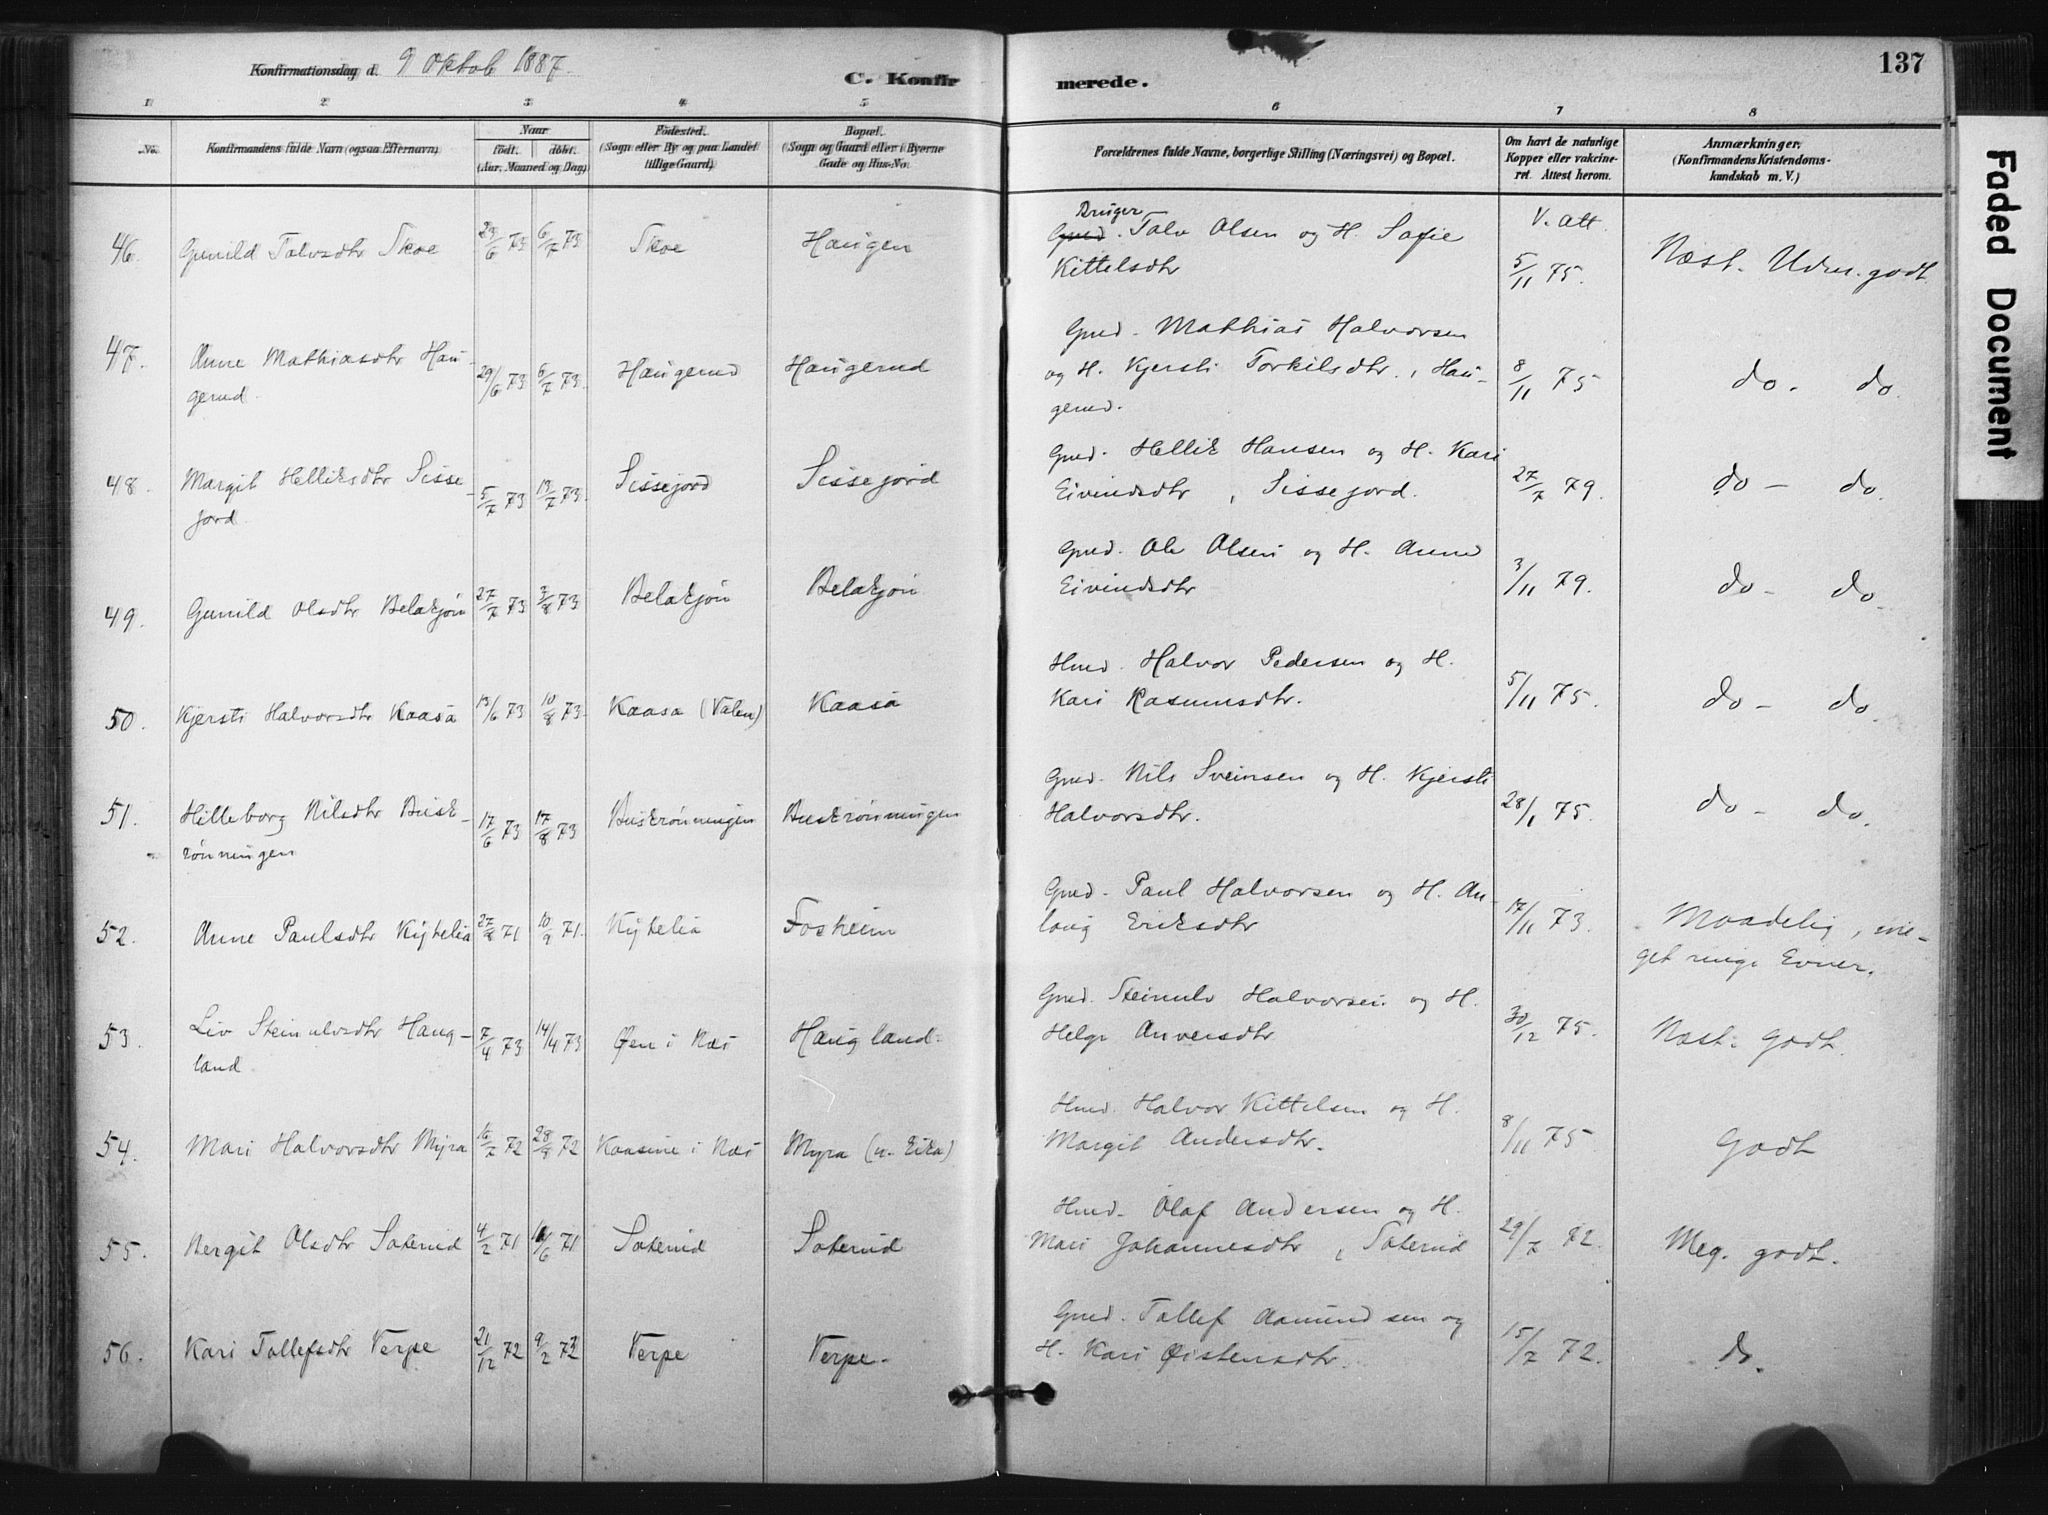 Konfirmationsdag d. 9 Oktob 1887.
C. Konfirmerede.
137
Faded Document
1 2 3 4 5 6 7 8
No. Konfirmandens fulde Navn (ogsaa Efternavn). Naar født. døbt. (Aar, Maaned og Dag) Fødested. (Sogn eller By og paa Landet tillige Gaard) Bopæl. (Sogn og Gaard eller i Byerne Gade og Hus-No. Forældrenes fulde Navne, borgerlige Stilling (Næringsvei) og Bopæl. Om havt de naturlige Kopper eller vakcineret. Attest herom. Anmærkninger. (Konfirmandens Kristendomskundskab m. V.)
46. Gunild Talvsdtr Skoe 23/6 73 6/7 73 Skoe Haugen Bruger Talv Olsen og H. Sofie V. att
Kittelsdtr 5/11 75. Næst. Udm. godt
47. Anne Mathiasdtr Hau- 29/6 73 6/7 73. Haugerud Haugerud Gmd. Mathias Halvorsen
gerud. og H. Kjersti Torkilsdtr., Hau- 8/11 75 do. do.
gerud.
48. Margit Helliksdtr Sisse- 5/7 73 13/7 73. Sissejord Sissejord Gmd. Hellik Hansen og H. Kari
jord. Eivindsdtr, Sissejord. 27/7 79. do - do.
49. Gunild Olsdtr Belakjøn 27/7 73 3/8 73 Belakjøn Belakjøn. Gmd. Ole Olsen og H. Anne
Eivindsdtr 3/11 79. do - do.
50. Kjersti Halvorsdtr Kaasa 13/6 73 10/8 73. Kaasa (Valen) Kaasa Hmd. Halvor Pedersen og H.
Kari Rasmusdtr. 5/11 75. do - do.
51. Hilleborg Nilsdtr Busk- 17/6 73 17/8 73 Buskrønningen Buskrønningen Gmd. Nils Sveinsen og H. Kjersti
rønningen Halvorsdtr. 28/1 75. do - do.
52. Anne Paulsdtr Kyhelia 27/8 71 10/9 71. Kyhelia Fosheim Gmd. Paul Halvorsen og H. An-
laug Eriksdtr 17/11 73. Maadelig, me-
get ringe Evner.
53. Liv Steinulvsdtr Haug- 7/4 73 14/4 73 Øen i Næs Haugland. Gmd. Steinulv Halvorsen og H.
land. Helge Anversdtr 30/12 75. Næst. godt.
54. Mari Halvorsdtr Myra 16/7 72 28/8 72 Kaasene i Næs Myra (u. Eika) Hmd. Halvor Kittelsen og H.
Margit Andersdtr. 8/11 75 Godt
55. Bergit Olsdtr Saterud 4/2 71 /6 71 Saterud Saterud Hmd. Olaf Andersen og H.
Mari Johannesdtr, Saterud 29/7 72. Meg. godt.
56. Kari Tallefsdtr Verpe 21/12 72 9/2 72 Verpe Verpe. Gmd. Tallef Aamundsen og
H. Kari Øistensdtr. 15/7 72. do.